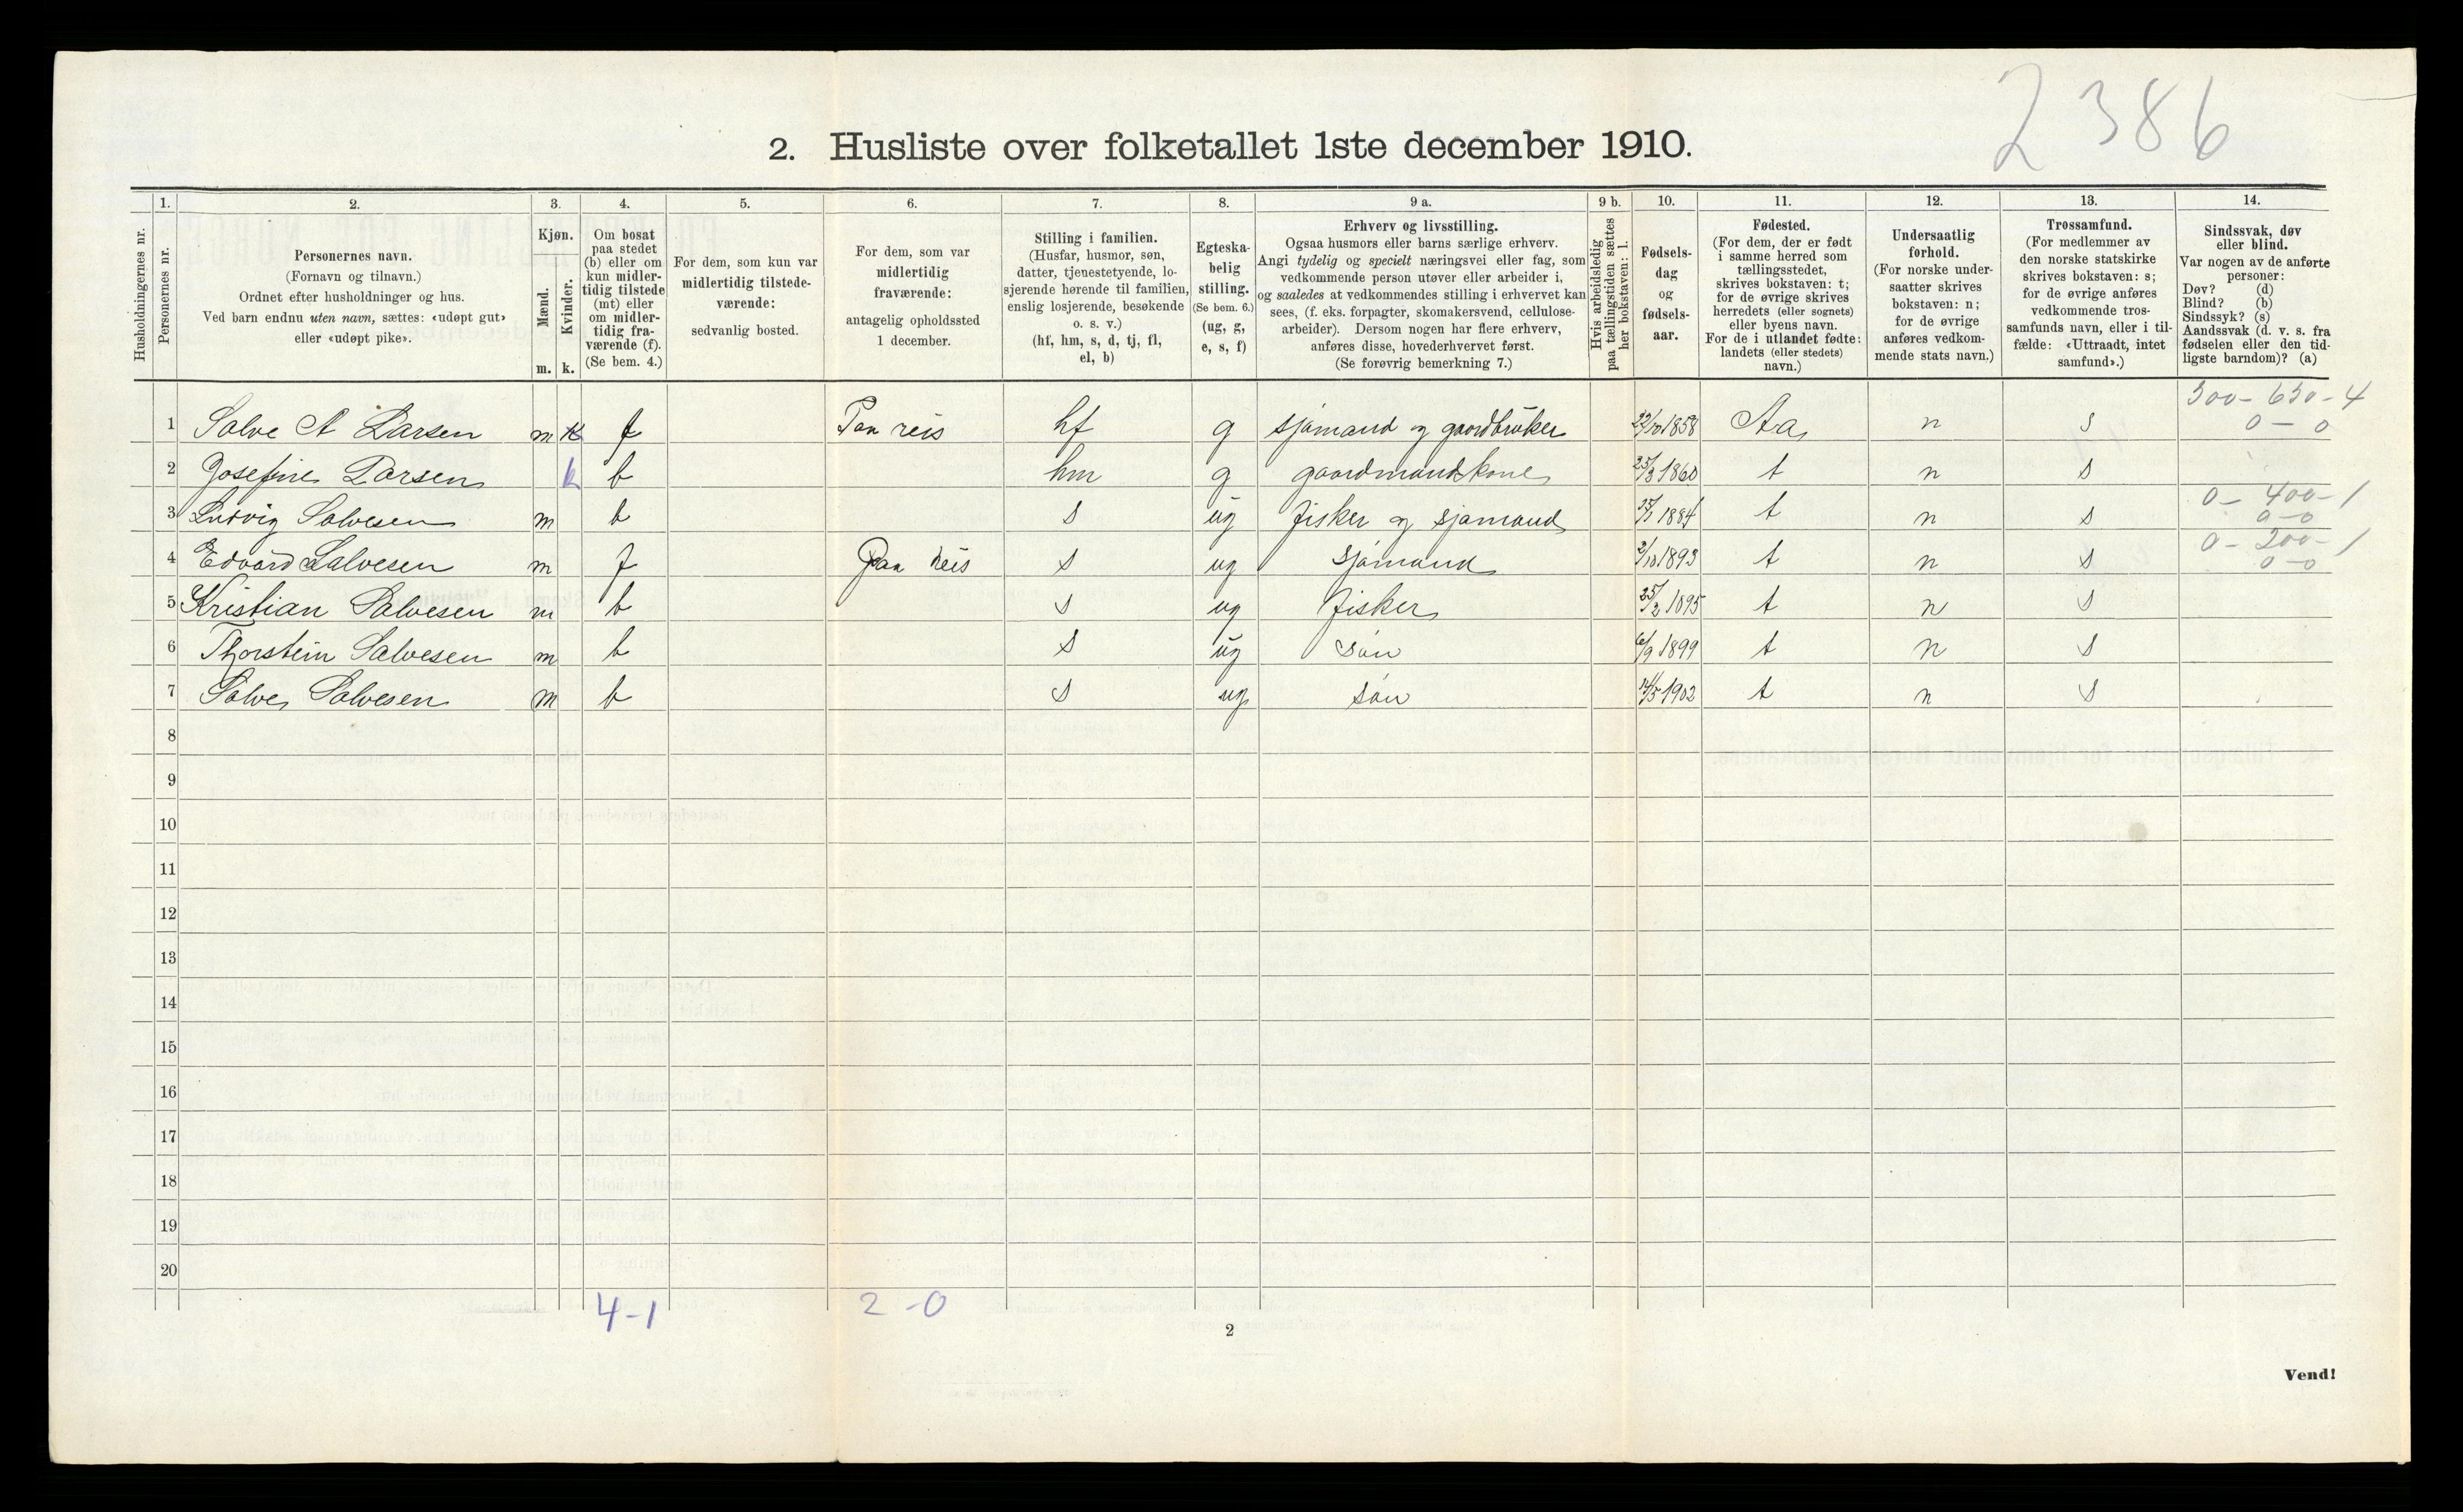 2386
2. Husliste over folketallet 1ste december 1910.
Husholdningernes nr.
1.
Personernes nr.
2.
Personernes navn.
(Fornavn og tilnavn.)
Ordnet efter husholdninger og hus.
Ved barn endnu uten navn, sættes: «udøpt gut»
eller «udøpt pike».
3.
Kjøn.
Mænd.
Kvinder.
m. k.
4.
Om bosat
paa stedet
(b) eller om
kun midler-
tidig tilstede
(mt) eller
om midler-
tidig fra-
værende (f).
(Se bem. 4.)
5.
For dem, som kun var
midlertidig tilstede-
værende:
sedvanlig bosted.
6.
For dem, som var
midlertidig
fraværende:
antagelig opholdssted
1 december.
7.
Stilling i familien.
(Husfar, husmor, søn,
datter, tjenestetyende, lo-
sjerende hørende til familien,
enslig losjerende, besøkende
o. s. v.)
(hf, hm, s, d, tj, fl,
el, b)
8.
Egteska-
belig
stilling.
(Se bem. 6.)
(ug, g,
e, s, f)
9 a.
Erhverv og livsstilling.
Ogsaa husmors eller barns særlige erhverv.
Angi tydelig og specielt næringsvei eller fag, som
vedkommende person utøver eller arbeider i,
og saaledes at vedkommendes stilling i erhvervet kan
sees, (f. eks. forpagter, skomakersvend, cellulose-
arbeider). Dersom nogen har flere erhverv,
anføres disse, hovederhvervet først.
(Se forøvrig bemerkning 7.)
9 b.
Hvis arbeidsledig
paa tællingstiden sættes
her bokstaven: l.
10.
Fødsels-
dag
og
fødsels-
aar.
11.
Fødested.
(For dem, der er født
i samme herred som
tællingsstedet,
skrives bokstaven: t;
for de øvrige skrives
herredets (eller sognets)
eller byens navn.
For de i utlandet fødte:
landets (eller stedets)
navn.)
12.
Undersaatlig
forhold.
(For norske under-
saatter skrives
bokstaven: n;
for de øvrige
anføres vedkom-
mende stats navn.)
13.
Trossamfund.
(For medlemmer av
den norske statskirke
skrives bokstaven: s;
for de øvrige anføres
vedkommende tros-
samfunds navn, eller i til-
fælde: «Uttraadt, intet
samfund».)
14.
Sindssvak, døv
eller blind.
Var nogen av de anførte
personer:
Døv? (d)
Blind? (b)
Sindssyk? (s)
Aandssvak (d. v. s. fra
fødselen eller den tid-
ligste barndom)? (a)
1 Salve A Larsen m f Paa reis hf g sjømand og gaardbruker 1858 Aa n s 500 - 650 - 4
0 - 0
2 Josefine Larsen k b hm g gaardmandskone 25/3 1860 t n s
3 Ludvig Salvesen m b s ug fisker og sjømand 1884 t n s 0 - 400 - 1
0 - 0
4 Edvard Salvesen m f Paa Reis s ug sjømand 2/10 1893 t n s 0 - 200 - 1
0 - 0
5 Kristian Salvesen m b s ug fisker 25/2 1895 t n s
6 Thorstein Salvesen m b s ug søn 6/9 1899 t n s
7 Salve Salvesen m b s ug søn 14/5 1902 t n s
8
9
10
11
12
13
14
15
16
17
18
19
20
4-1 2-0
2
Vend!